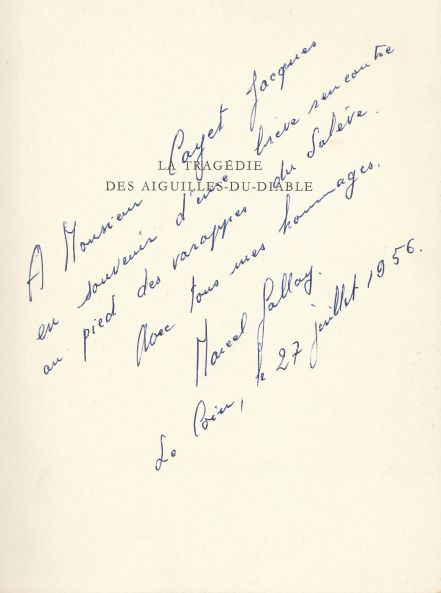 LA TRAGÉDIE
DES AIGUILLES-DU-DIABLE
A Monsieur Payet Jacques
en souvenir d'une brève rencontre
au pied des varappes du Salève.
Avec tous mes hommages.
Marcel Gallay.
Le Coin, le 27 juillet 1956.